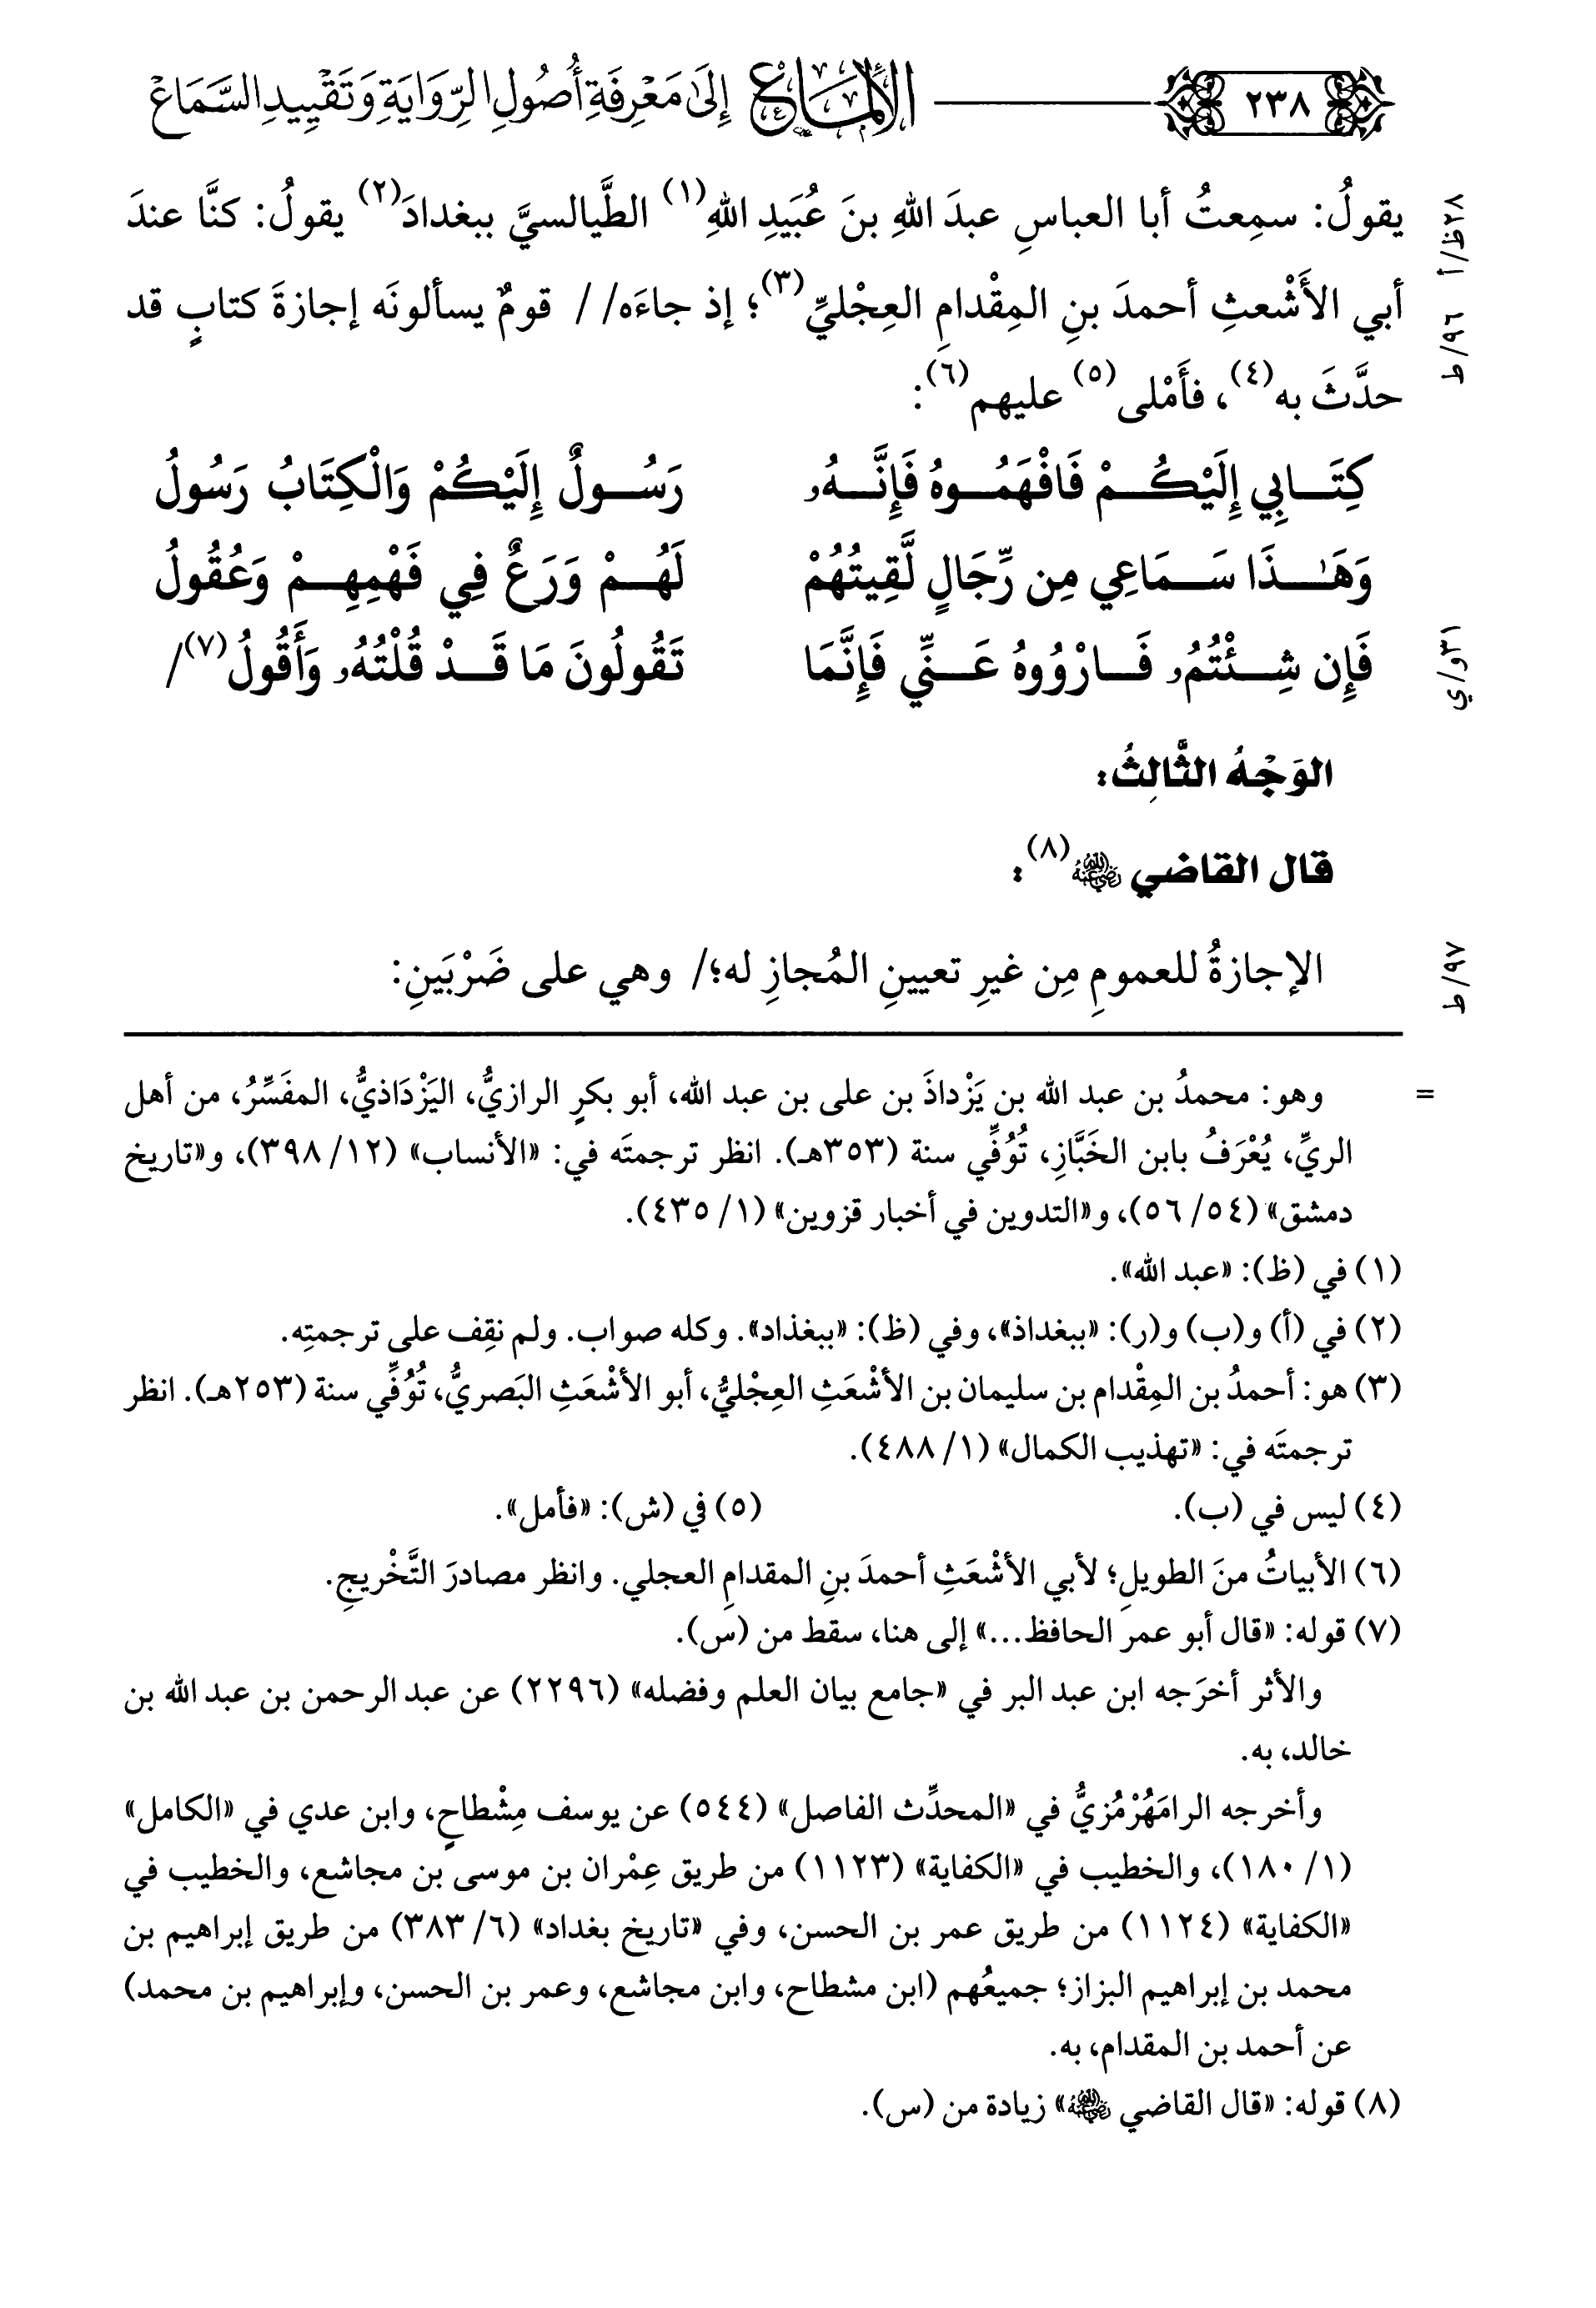 ٢٣٨ الإلماع إلى معرفة أصول الرواية وتقييد السماع
يقولُ: سمِعتُ أبا العباسِ عبدَ اللهِ بنَ عُبَيدِ اللهِ(١) الطَّيالسيَّ ببغدادَ(٢) يقولُ: كنَّا عندَ
٢٨ظ/أ
أبي الأَشْعثِ أحمدَ بنِ المِقْدامِ العِجْليِّ(٣)؛ إذ جاءَه// قومٌ يسألونَه إجازةَ كتابٍ قد
٩٦/ط
حدَّثَ به(٤)، فأَمْلى(٥) عليهم(٦):
كِتَابِي إِلَيْكُمْ فَافْهَمُوهُ فَإِنَّهُۥ رَسُولٌ إِلَيْكُمْ وَالْكِتَابُ رَسُولُ
وَهَٰذَا سَمَاعِي مِن رِّجَالٍ لَّقِيتُهُمْ لَهُمْ وَرَعٌ فِي فَهْمِهِمْ وَعُقُولُ
فَإِن شِئْتُمُۥ فَارْوُوهُ عَنِّي فَإِنَّمَا تَقُولُونَ مَا قَدْ قُلْتُهُۥ وَأَقُولُ(٧)/
٣١و/ي
الوَجْهُ الثَّالِثُ:
قال القاضي رضي الله عنه(٨):
الإجازةُ للعمومِ مِن غيرِ تعيينِ المُجازِ له؛/ وهي على ضَرْبَينِ:
٩٧/ط
= وهو: محمدُ بن عبد الله بن يَزْداذَ بن على بن عبد الله، أبو بكرٍ الرازيُّ، اليَزْدَاذيُّ، المفَسِّرُ، من أهل
الريِّ، يُعْرَفُ بابن الخَبَّازِ، تُوُفِّي سنة (٣٥٣هـ). انظر ترجمتَه في: «الأنساب» (١٢/ ٣٩٨)، و«تاريخ
دمشق» (٥٤/ ٥٦)، و«التدوين في أخبار قزوين» (١/ ٤٣٥).
(١) في (ظ): «عبد الله».
(٢) في (أ) و(ب) و(ر): «ببغداذ»، وفي (ظ): «ببغذاد». وكله صواب. ولم نقِف على ترجمتِه.
(٣) هو: أحمدُ بن المِقْدام بن سليمان بن الأشْعَثِ العِجْليُّ، أبو الأشْعَثِ البَصريُّ، تُوُفِّي سنة (٢٥٣هـ). انظر
ترجمتَه في: «تهذيب الكمال» (١/ ٤٨٨).
(٤) ليس في (ب). (٥) في (ش): «فأمل».
(٦) الأبياتُ منَ الطويلِ؛ لأبي الأشْعَثِ أحمدَ بنِ المقدامِ العجلي. وانظر مصادرَ التَّخْريجِ.
(٧) قوله: «قال أبو عمر الحافظ...» إلى هنا، سقط من (س).
والأثر أخرَجه ابن عبد البر في «جامع بيان العلم وفضله» (٢٢٩٦) عن عبد الرحمن بن عبد الله بن
خالد، به.
وأخرجه الرامَهُرْمُزيُّ في «المحدِّث الفاصل» (٥٤٤) عن يوسف مِشْطاحٍ، وابن عدي في «الكامل»
(١/ ١٨٠)، والخطيب في «الكفاية» (١١٢٣) من طريق عِمْران بن موسى بن مجاشع، والخطيب في
«الكفاية» (١١٢٤) من طريق عمر بن الحسن، وفي «تاريخ بغداد» (٦/ ٣٨٣) من طريق إبراهيم بن
محمد بن إبراهيم البزاز؛ جميعُهم (ابن مشطاح، وابن مجاشع، وعمر بن الحسن، وإبراهيم بن محمد)
عن أحمد بن المقدام، به.
(٨) قوله: «قال القاضي رضي الله عنه» زيادة من (س).